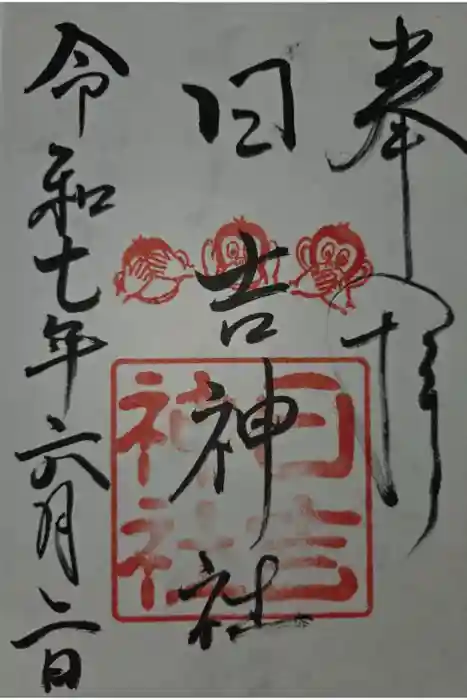 奉拝
日吉神社
日吉
神社
令和七年六月二日